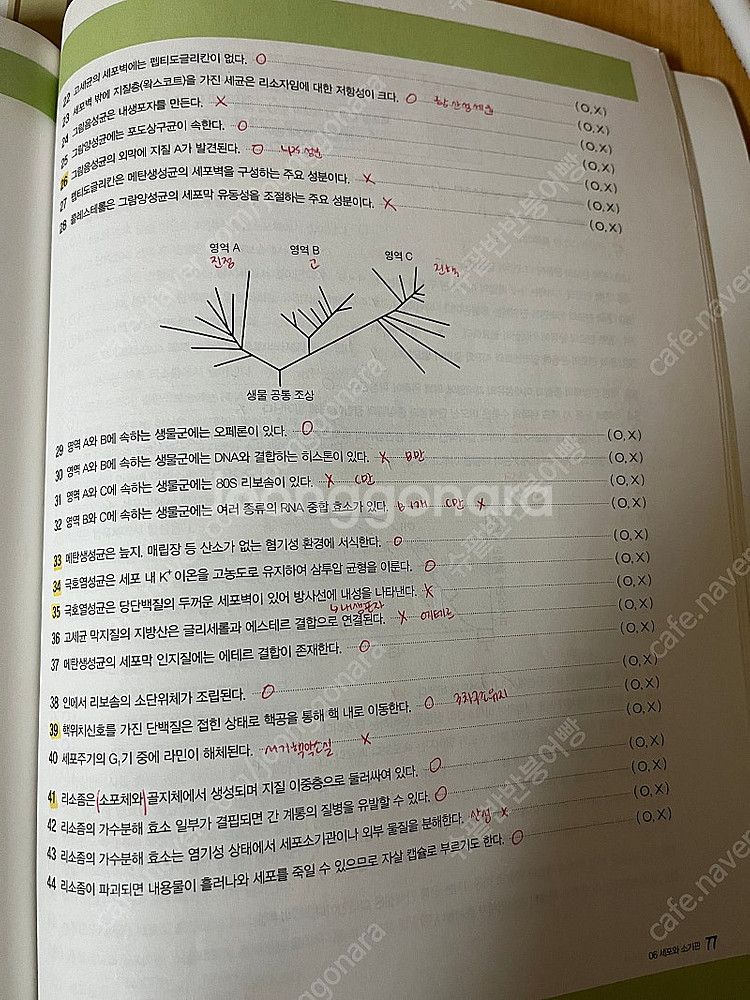 22 고세균의 세포벽에는 펩티도글리칸이 없다. O (O, X)
23 세포벽 밖에 지질층(왁스코트)을 가진 세균은 리소자임에 대한 저항성이 크다. O 항산성세균 (O, X)
24 그람음성균은 내생포자를 만든다. X (O, X)
25 그람양성균에는 포도상구균이 속한다. O (O, X)
26 그람음성균의 외막에 지질 A가 발견된다. O LPS 성분 (O, X)
27 펩티도글리칸은 메탄생성균의 세포벽을 구성하는 주요 성분이다. X (O, X)
28 콜레스테롤은 그람양성균의 세포막 유동성을 조절하는 주요 성분이다. X (O, X)
영역 A 영역 B 영역 C
진정 고
생물 공통 조상
29 영역 A와 B에 속하는 생물군에는 오페론이 있다. O (O, X)
30 영역 A와 B에 속하는 생물군에는 DNA와 결합하는 히스톤이 있다. X B만 (O, X)
31 영역 A와 C에 속하는 생물군에는 80S 리보솜이 있다. X C만 (O, X)
32 영역 B와 C에 속하는 생물군에는 여러 종류의 RNA 중합 효소가 있다. C만 X (O, X)
33 메탄생성균은 늪지, 매립장 등 산소가 없는 혐기성 환경에 서식한다. O (O, X)
34 극호염성균은 세포 내 K+ 이온을 고농도로 유지하여 삼투압 균형을 이룬다. O (O, X)
35 극호염성균은 당단백질의 두꺼운 세포벽이 있어 방사선에 내성을 나타낸다. X (O, X)
내생포자
36 고세균 막지질의 지방산은 글리세롤과 에스테르 결합으로 연결된다. X 에테르 (O, X)
37 메탄생성균의 세포막 인지질에는 에테르 결합이 존재한다. O (O, X)
38 인에서 리보솜의 소단위체가 조립된다. O (O, X)
39 핵위치신호를 가진 단백질은 접힌 상태로 핵공을 통해 핵 내로 이동한다. O 3차구조유지 (O, X)
40 세포주기의 G₁기 중에 라민이 해체된다. X (O, X)
41 리소좀은 (소포체와) 골지체에서 생성되며 지질 이중층으로 둘러싸여 있다. O (O, X)
42 리소좀의 가수분해 효소 일부가 결핍되면 간 계통의 질병을 유발할 수 있다. O (O, X)
43 리소좀의 가수분해 효소는 염기성 상태에서 세포소기관이나 외부 물질을 분해한다. 산성 X (O, X)
44 리소좀이 파괴되면 내용물이 흘러나와 세포를 죽일 수 있으므로 자살 캡슐로 부르기도 한다. O (O, X)
06 세포와 소기관 77
joonggonara
cafe.naver
수필반반붕어빵